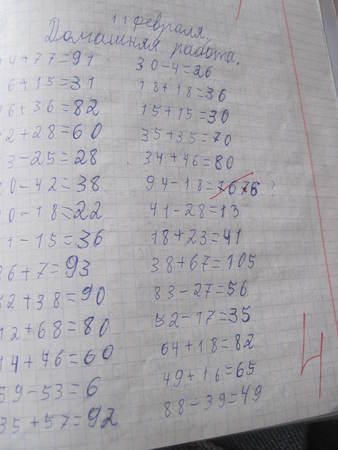 11 февраля.
Домашняя работа.
4+77=91
6+15=31
6+36=82
2+28=60
3-25=28
0-42=38
0-18=22
1-15=36
6+7=93
52+38=90
12+68=80
14+46=60
59-53=6
35+57=92
30-4=26
18+18=36
15+15=30
35+35=70
34+46=80
94-18=70 76 ?
41-28=13
18+23=41
38+67=105
83-27=56
52-17=35
64+18=82
49+16=65
88-39=49
4